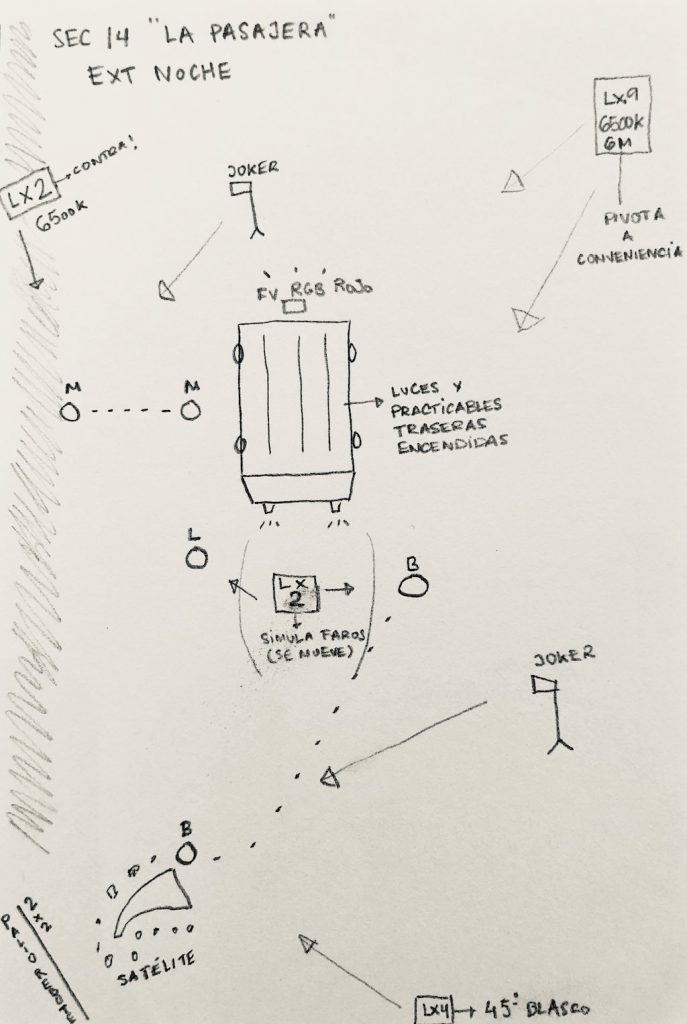 SEC 14 "LA PASAJERA"
EXT NOCHE
LX9
6500K
6M
PIVOTA
A
CONVENIENCIA
CONTRA!
LX2
6500K
JOKER
FV RGB ROJO
M
M
LUCES Y
PRACTICABLES
TRASERAS
ENCENDIDAS
L
B
LX
2
SIMULA FAROS
(SE MUEVE)
JOKER
B
SATÉLITE
2x2
PALIO REBOTE
LX4
45° BLASCO